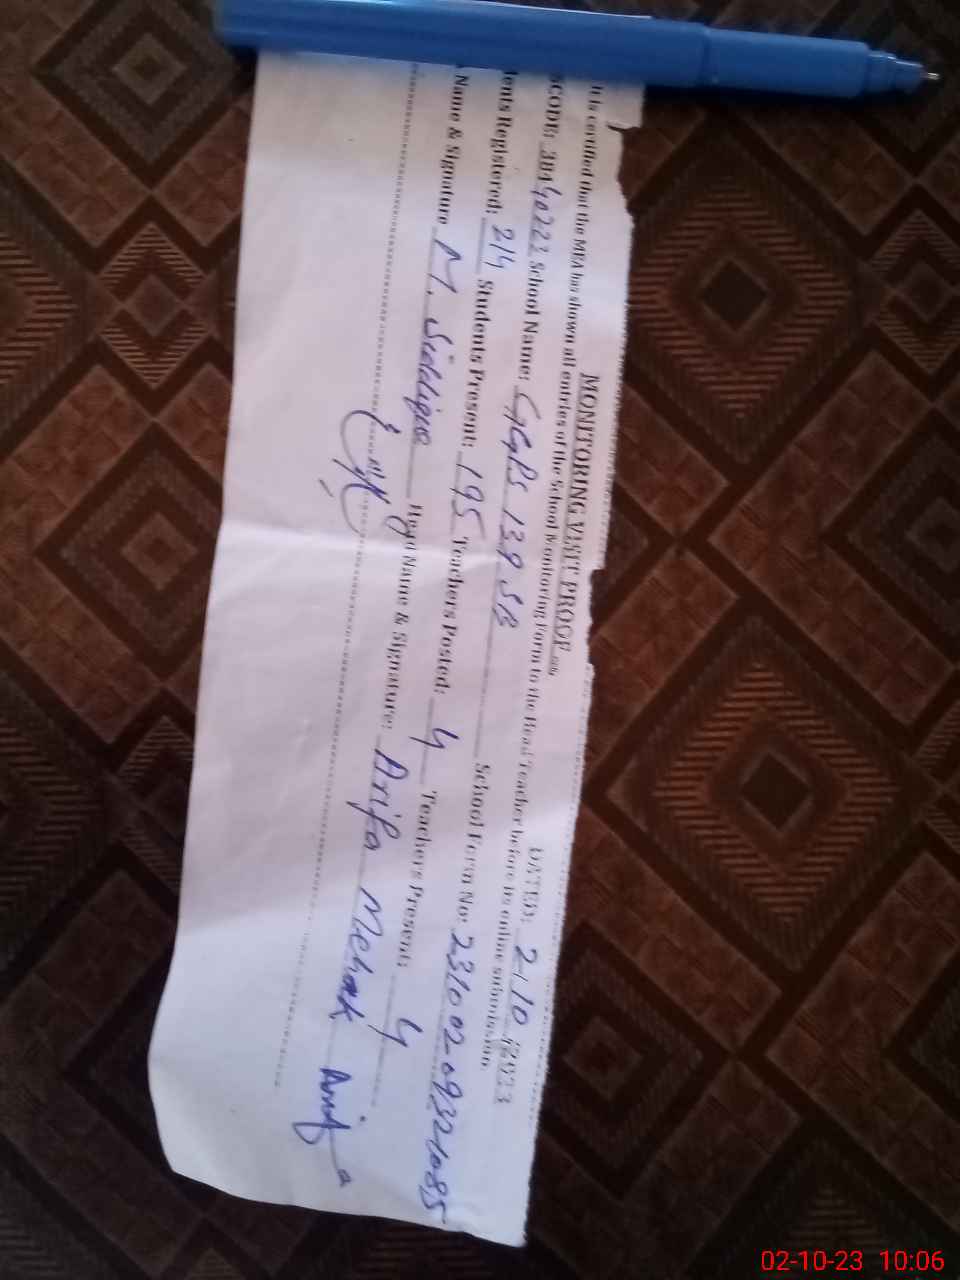 MONITORING VISIT PROOF
DATED: 2-10-2023
It is certified that the MEA has shown all entries of the School Monitoring Form to the Head Teacher before its online submission.
SCODE: 38440223 School Name: GGPS 139 SB School Form No: 231002-09321085
ents Registered: 214 Students Present: 195 Teachers Posted: 4 Teachers Present: 4
Name & Signature M. Siddique Head Name & Signature: Arifa Mehak
02-10-23 10:06